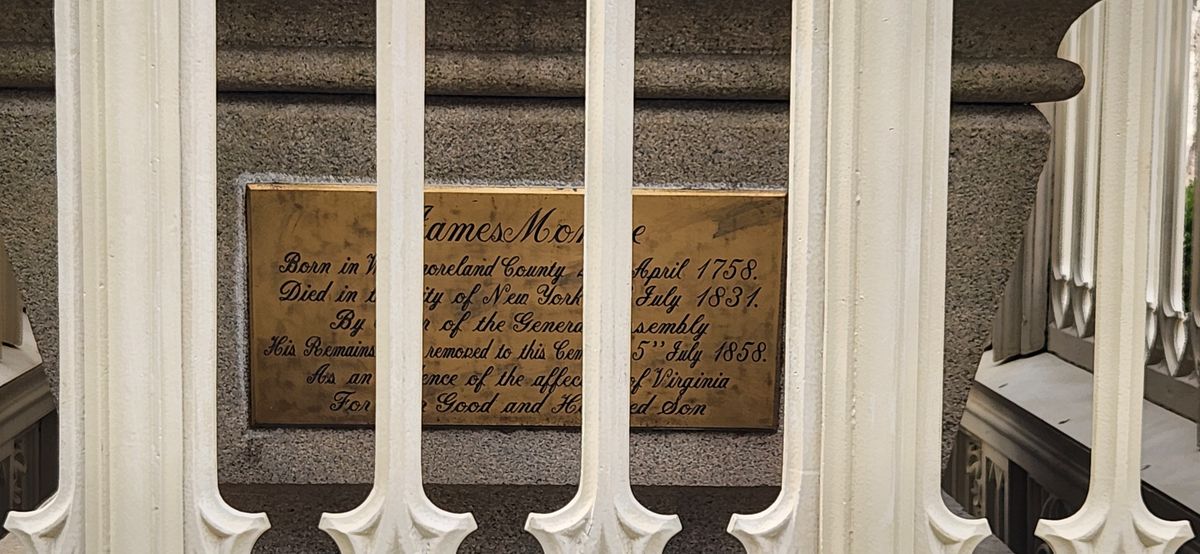 James Monroe
Born in Westmoreland County April 1758.
Died in the City of New York July 1831.
By Order of the General Assembly
His Remains removed to this Cemetery 5" July 1858.
As an evidence of the affection of Virginia
For Her Good and Honored Son